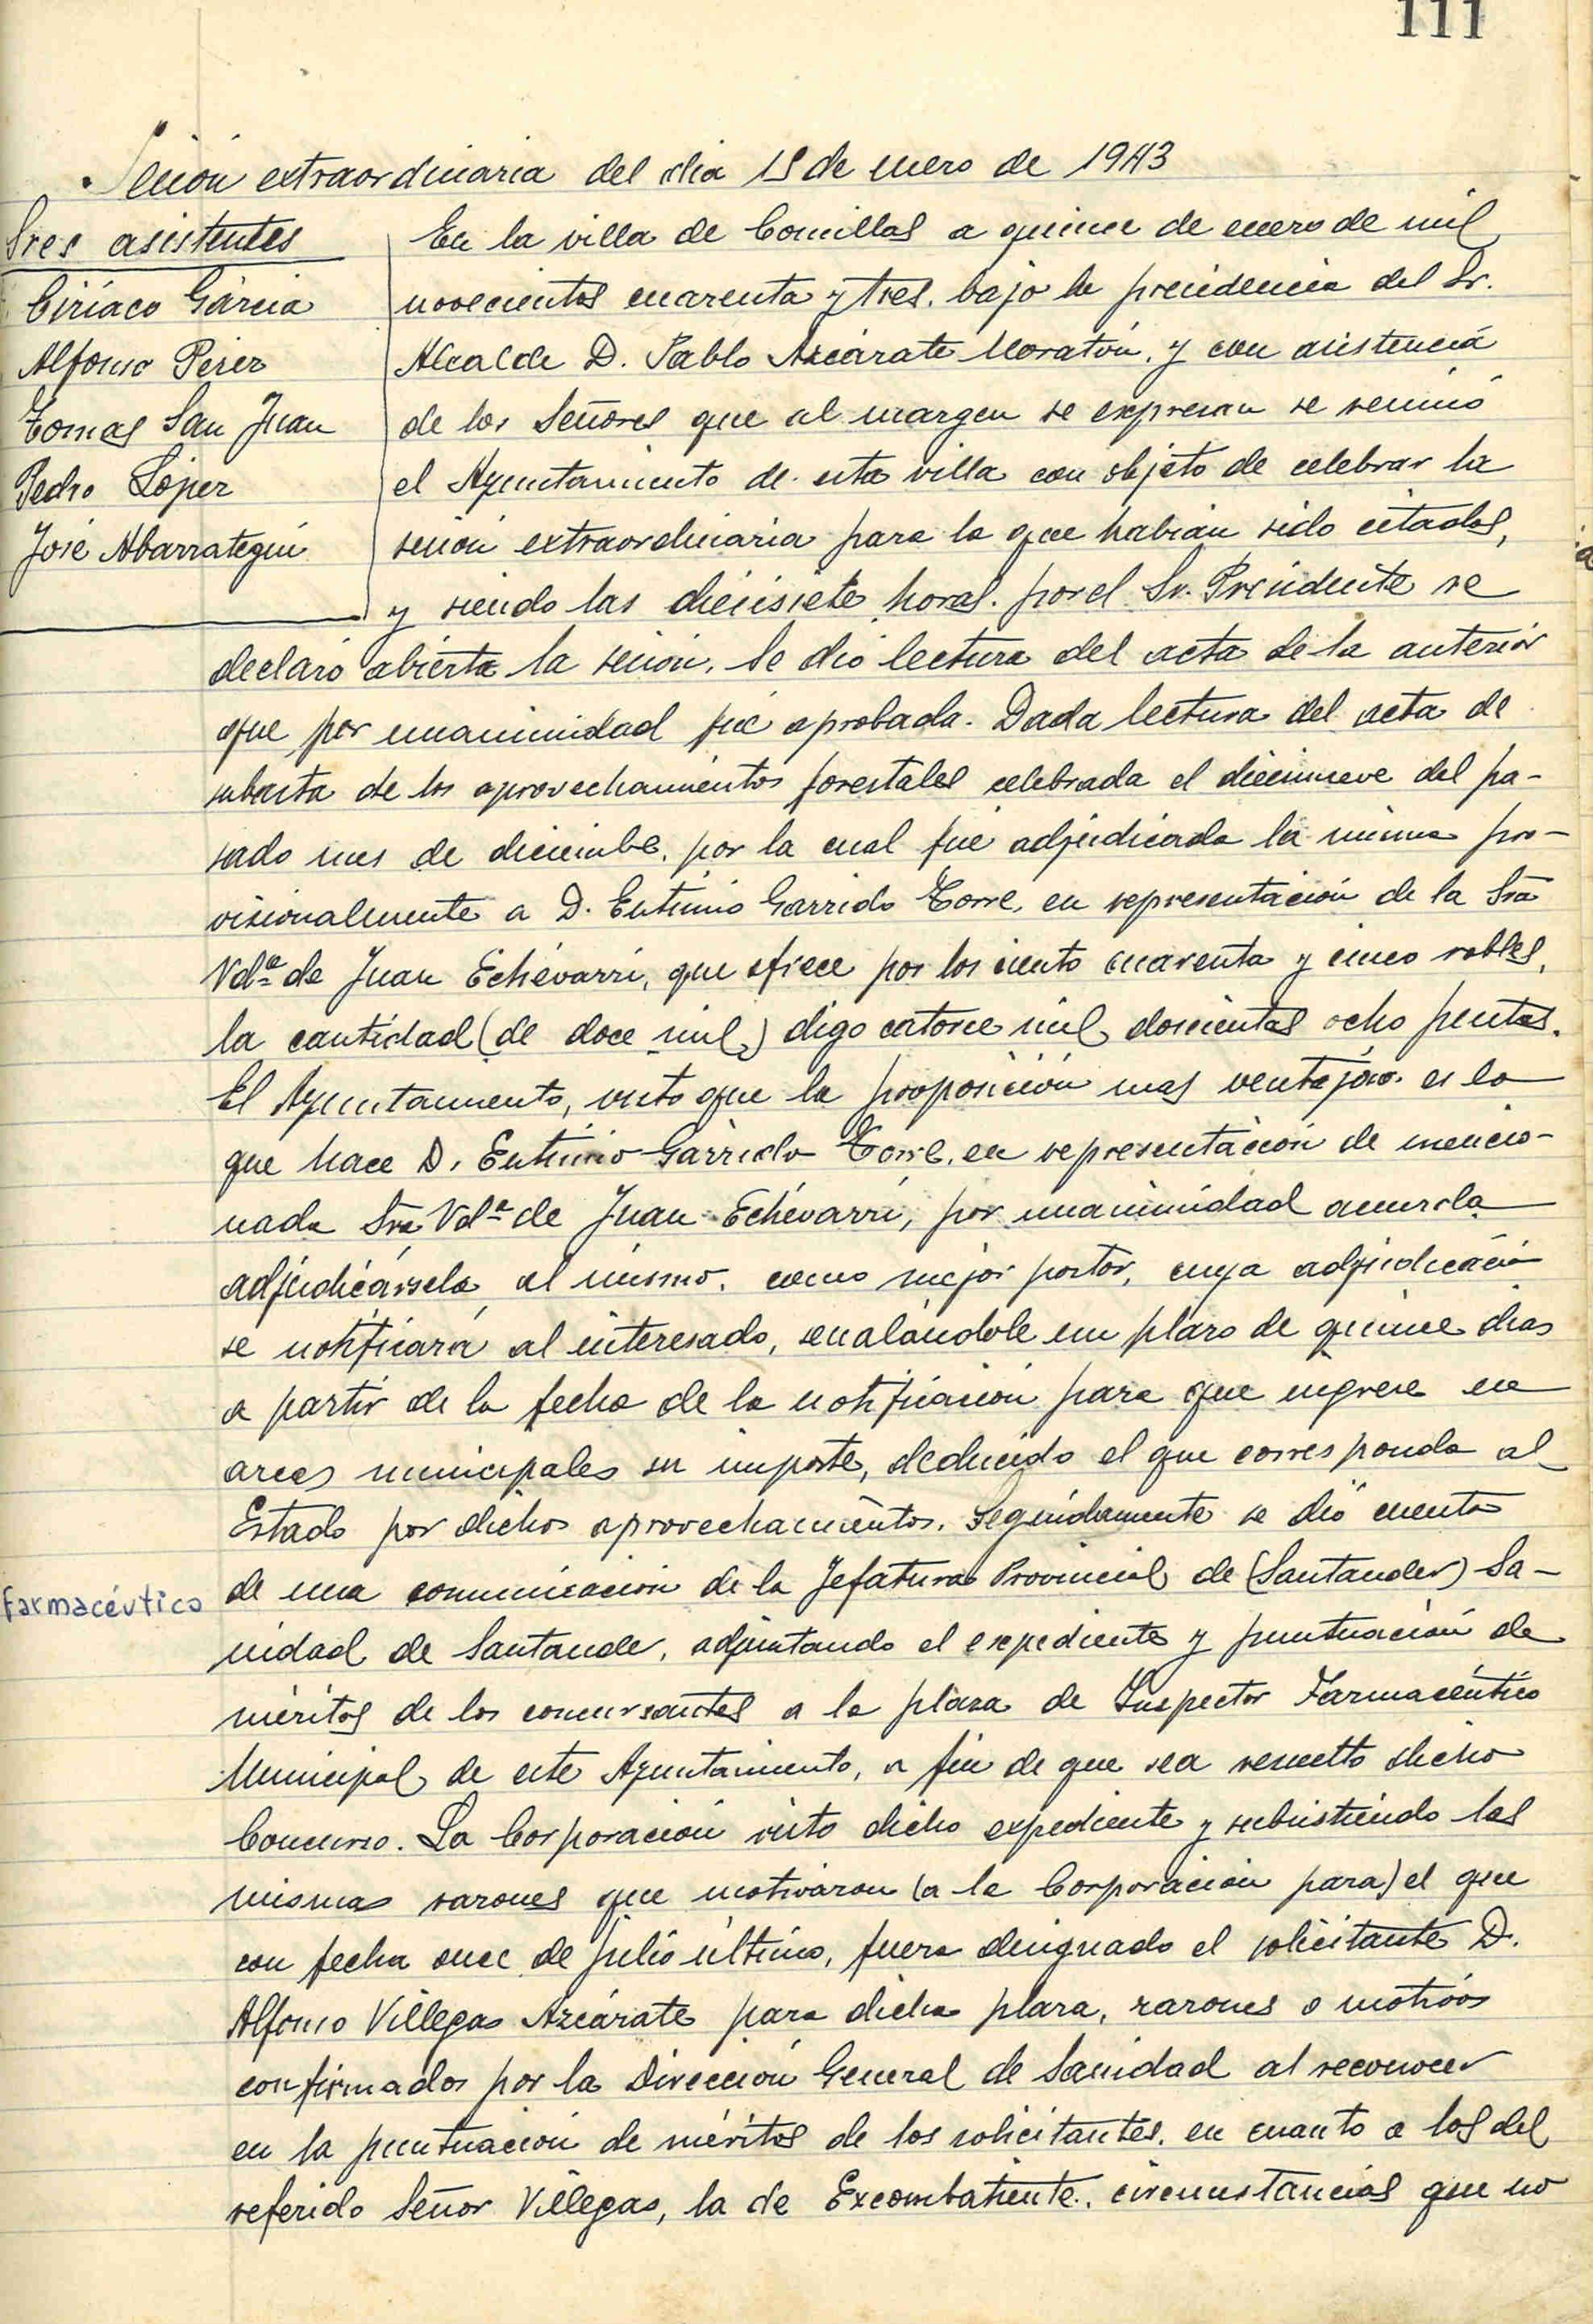 111
Sesión extraordinaria del dia 15 de enero de 1943
Sres asistentes
Ciríaco García
Alfonso Perez
Tomas San Juan
Pedro López
José Abarrategui
En la villa de Comillas a quince de enero de mil
novecientos cuarenta y tres, bajo la presidencia del Sr.
Alcalde D. Pablo Azcárate Moratón, y con asistencia
de los Señores que al margen se expresan se reunió
el Ayuntamiento de esta villa con objeto de celebrar la
sesión extraordinaria para la que habian sido citados,
y siendo las diecisiete horas. por el Sr. Presidente se
declaró abierta la sesión. Se dió lectura del acta de la anterior
que por unanimidad fué aprobada. Dada lectura del acta de
subasta de los aprovechamientos forestales celebrada el diecinueve del pa-
sado mes de diciembre, por la cual fué adjudicada la misma pro-
visionalmente a D. Eutimio Garrido Torre, en representación de la Sra
Vdª de Juan Echévarri, que ofrece por los ciento cuarenta y cinco robles,
la cantidad (de doce mil,) digo catorce mil doscientas ocho pesetas.
El Ayuntamiento, visto que la proposición mas ventajosa es la
que hace D. Eutimio Garrido Torre, en representación de mencio-
nada Sra Vdª de Juan Echévarri, por unanimidad acuerda
adjudicársela al mismo, como mejor postor, cuya adjudicación
se notificará al interesado, senalándole un plazo de quince dias
a partir de la fecha de la notificación para que ingrese en
arcas municipales su importe, deducido el que corresponda al
Estado por dichos aprovechamientos. Seguidamente se dió cuenta
Farmacéutico
de una comunicacion de la Jefatura Provincial de (Santander) Sa-
nidad de Santander, adjuntando el expediente y puntuación de
méritos de los concursantes a la plaza de Inspector Farmacéutico
Municipal de este Ayuntamiento, a fin de que sea resuelto dicho
Concurso. La Corporación visto dicho expediente y subsistiendo las
mismas razones que motivaron (a la Corporación para) el que
con fecha once de julio último, fuera designado el solicitante D.
Alfonso Villegas Azcárate para dicha plaza, razones o motivos
confirmados por la Dirección General de Sanidad al reconocer
en la puntuación de méritos de los solicitantes, en cuanto a los del
referido Señor Villegas, la de Excombatiente, circunstancias que no